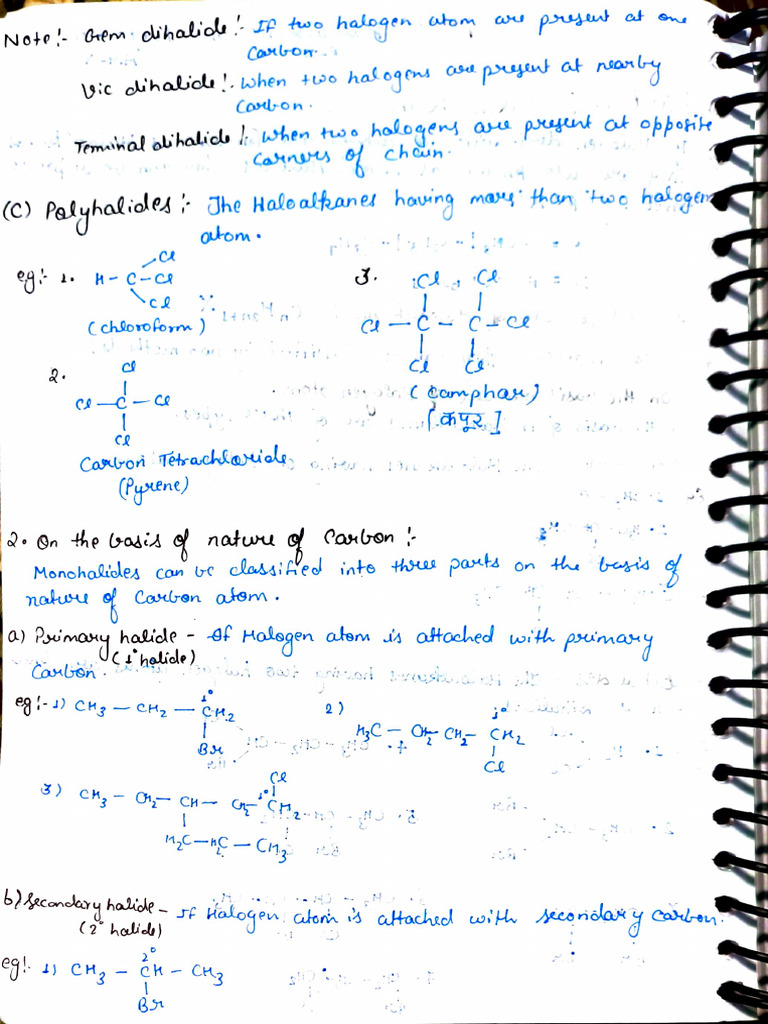 Note:- Gem dihalide:- If two halogen atom are present at one
Carbon.
Vic dihalide:- When two halogens are present at nearby
Carbon.
Terminal dihalide:- When two halogens are present at opposite
corners of chain.
(C) Polyhalides:- The Haloalkanes having more than two halogen
atom.
eg:- 1. H-C-Cl
Cl
Cl
(chloroform)
2. Cl
Cl-C-Cl
Cl
Carbon Tetrachloride
(Pyrene)
3. Cl Cl
Cl-C-C-Cl
Cl Cl
(Camphar)
[कपूर]
2. On the basis of nature of Carbon:-
Monohalides can be classified into three parts on the basis of
nature of Carbon atom.
a) Primary halide - If Halogen atom is attached with primary
(1° halide)
Carbon.
eg:- 1) CH3-CH2-CH2
1°
Br
2) H3C-CH2-CH2-CH2
1°
Cl
3) CH3-CH2-CH-CH2-CH2
1°
Cl
H2C-H2C-CH3
b) Secondary halide - If Halogen atom is attached with secondary Carbon.
(2° halide)
eg:- 1) CH3-CH-CH3
2°
Br